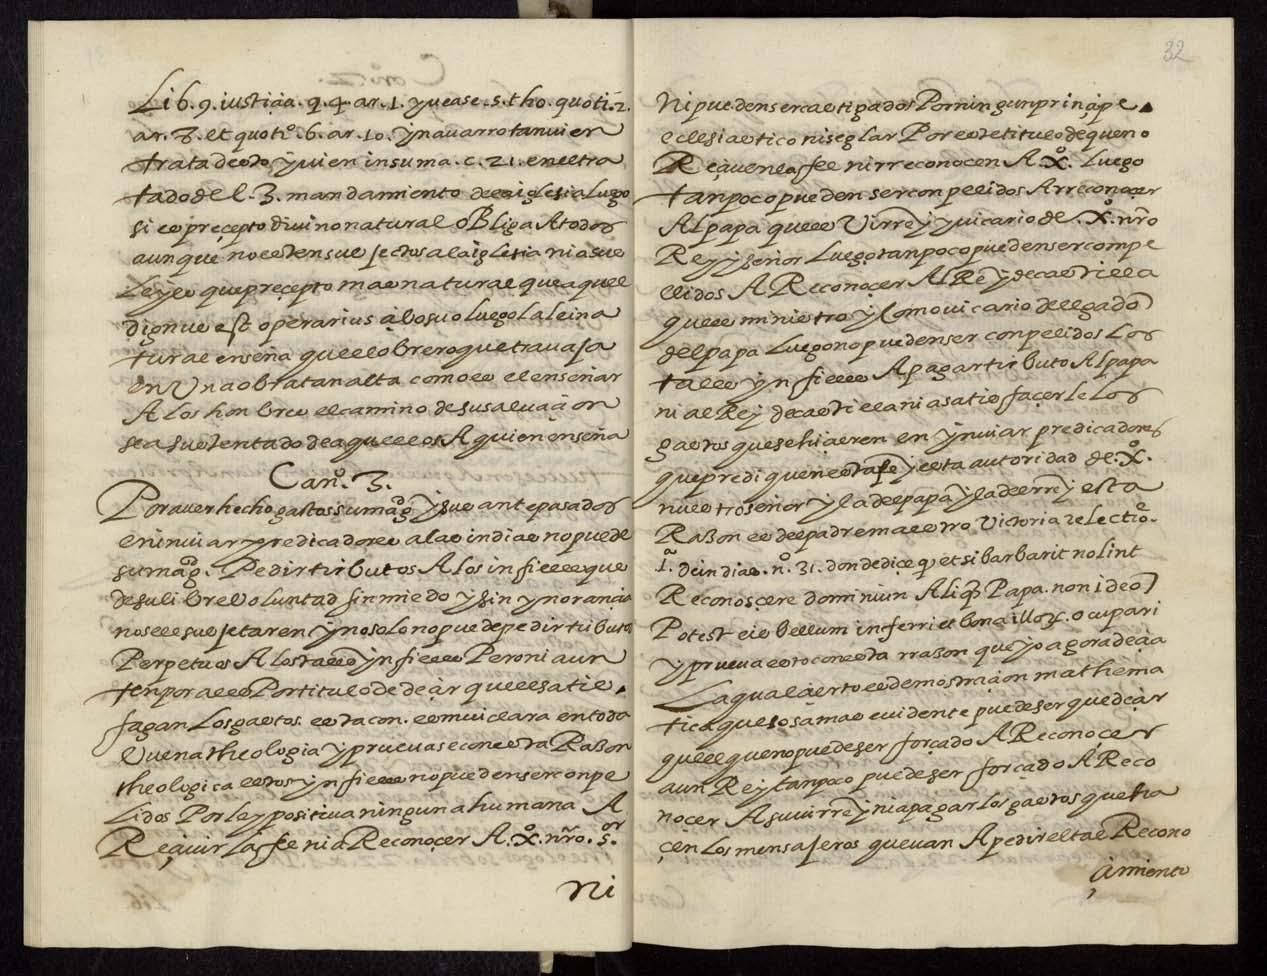 Lib. 9. iustiçia. q. 4. ar. 1. y vease. s. tho. quoti. 2.
ar. 3. et quoti.º 6. ar. 10. y navarro tanvien
trata desto y vien in suma. c. 21. en el tra
tado del. 3. mandamiento de la iglesia Luego
si es preçepto divino natural obliga A todos
aunque no esten suxectos a la iglesia ni a sus
Leyes que preçepto mas natural que aquel
dignus est operarius çibo suo luego La lei na
tural enseña quel obrero que travaja
en Una obra tan alta como es el enseñar
A los honbres el camino de su salvaçion
sea sustentado de aquellos A quien enseña
Can.º 3.
Por aver hecho gastos su mag.d y sus antepasados
en inviar predicadores a las indias no puede
su mag.d Pedir tributos A los infieles que
de su libre Voluntad sin miedo y sin ynorançia
no se le suxetaren y no solo no puede pedir tributos
Perpetuos A los tales ynfieles Pero ni aun
tenporales Por titulo de deçir que le satis
fagan Los gastos. esta con. es mui clara en toda
Vuena theologia y pruevase con esta Raçon
theologica estos ynfieles no pueden ser conpe
Lidos Por ley positiva ninguna humana A
Reçivir La fee ni a Reconoçer A. xº. nrõ. s.or
ni
32
Ni pueden ser castigados Por ningun prinçipe
eclesiastico ni seglar Por este titulo de que no
Reçiven la fee ni rreconocen A. xº. Luego
tanpoco pueden ser conpelidos A rreconoçer
Al papa ques Virrey y vicario de. xº. nrõ
Rey y señor Luego tanpoco pueden ser compe
llidos A Reconoçer Al Rey de castilla
ques ministro y como vicario dellegado
del papa Luego no pueden ser conpelidos Los
tales ynfieles A pagar tributo Al papa
ni al Rey de castilla ni a satisfaçerle Los
gastos que se hiçieren en ynviar predicadores
que prediquen esta fe y esta autoridad de. xº.
nuestro señor y la del papa y la del rrey esta
Raçon es del padre maestro Victoria relectiõe.
1.ª de indias. n.º 31. donde diçe q et si barbari nolint
Reconosçere dominiun Aliq Papa. non ideo
Potest eis bellum inferri et bona illoꝝ. ocupari
y prueva esto con esta rraçon que yo agora deçia
La qual çierto es demostraçion mathema
tica que so çima es evidente puede ser quedeçir
quel que no puede ser forçado A Reconoçer
a un Rey tanpoco puede ser forcado A Reco
nocer A su virrey ni a pagar los gastos que ha
çen Los mensajeros que van A pedir el tal Recono
çimiento